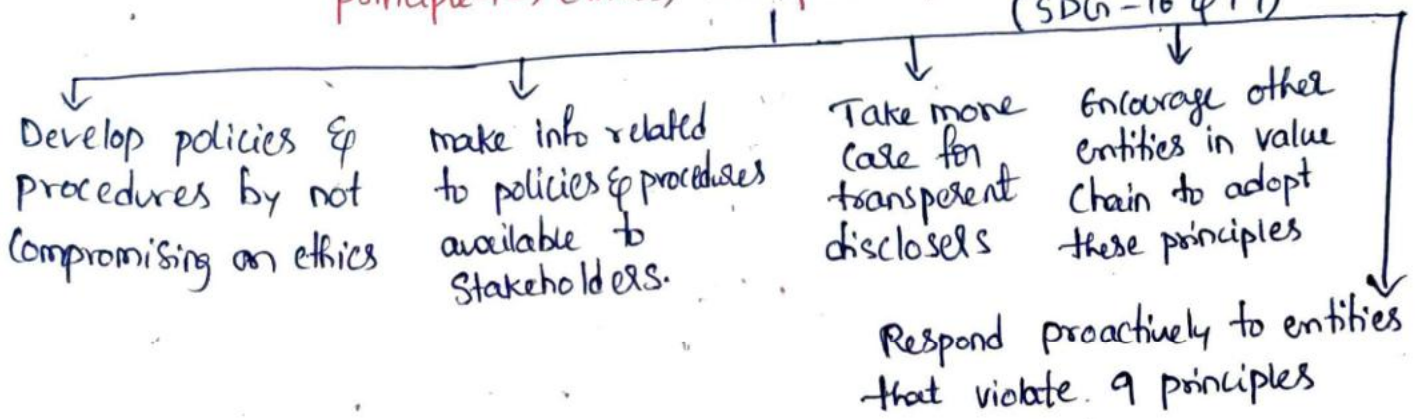 principle
(SDG-16
Develop policies &
procedures by not
Compromising on ethics
make info related
to policies & procedures
available to
Stakeholders.
Take more
Care for
transperent
disclosers
Encourage other
entities in value
Chain to adopt
these principles
Respond proactively to entities
that violate. 9 principles